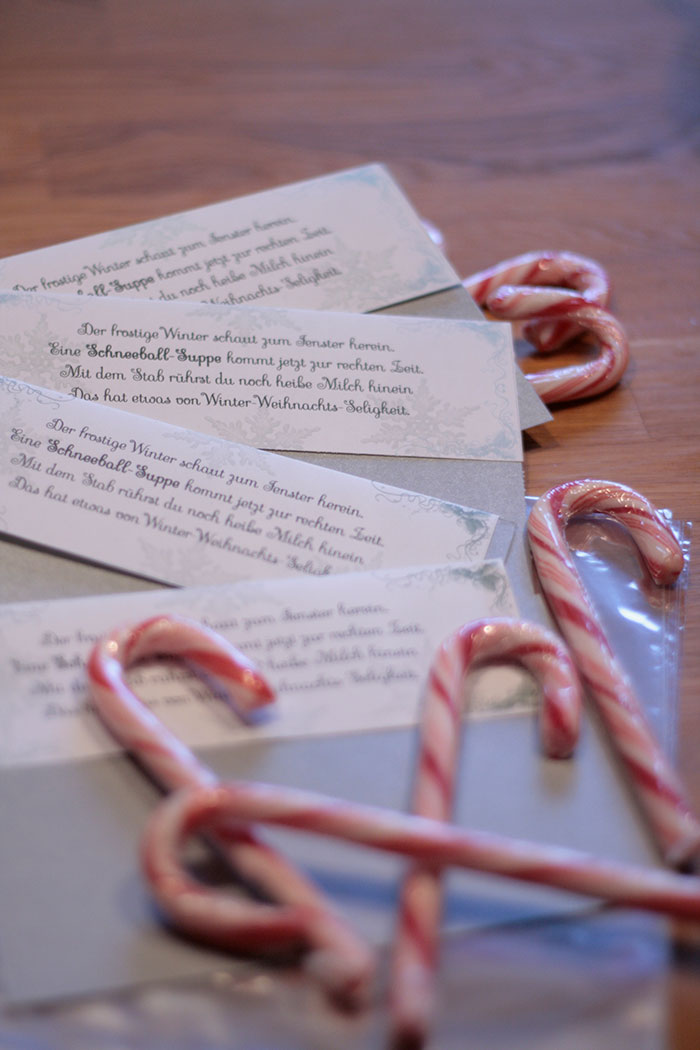 Der frostige Winter schaut zum Fenster herein.
Schneeball-Suppe kommt jetzt zur rechten Zeit.
rührst du noch heiße Milch hinein
Winter-Weihnachts-Seligkeit.
Der frostige Winter schaut zum Fenster herein.
Eine Schneeball-Suppe kommt jetzt zur rechten Zeit.
Mit dem Stab rührst du noch heiße Milch hinein
Das hat etwas von Winter-Weihnachts-Seligkeit.
Der frostige Winter schaut zum Fenster herein.
Eine Schneeball-Suppe kommt jetzt zur rechten Zeit.
Mit dem Stab rührst du noch heiße Milch hinein
Das hat etwas von Winter-Weihnachts-Seligk
Der schaut zum Fenster herein.
Eine jetzt zur rechten Zeit.
Mit noch heiße Milch hinein
von Winter-Weihnachts-Seligkeit.